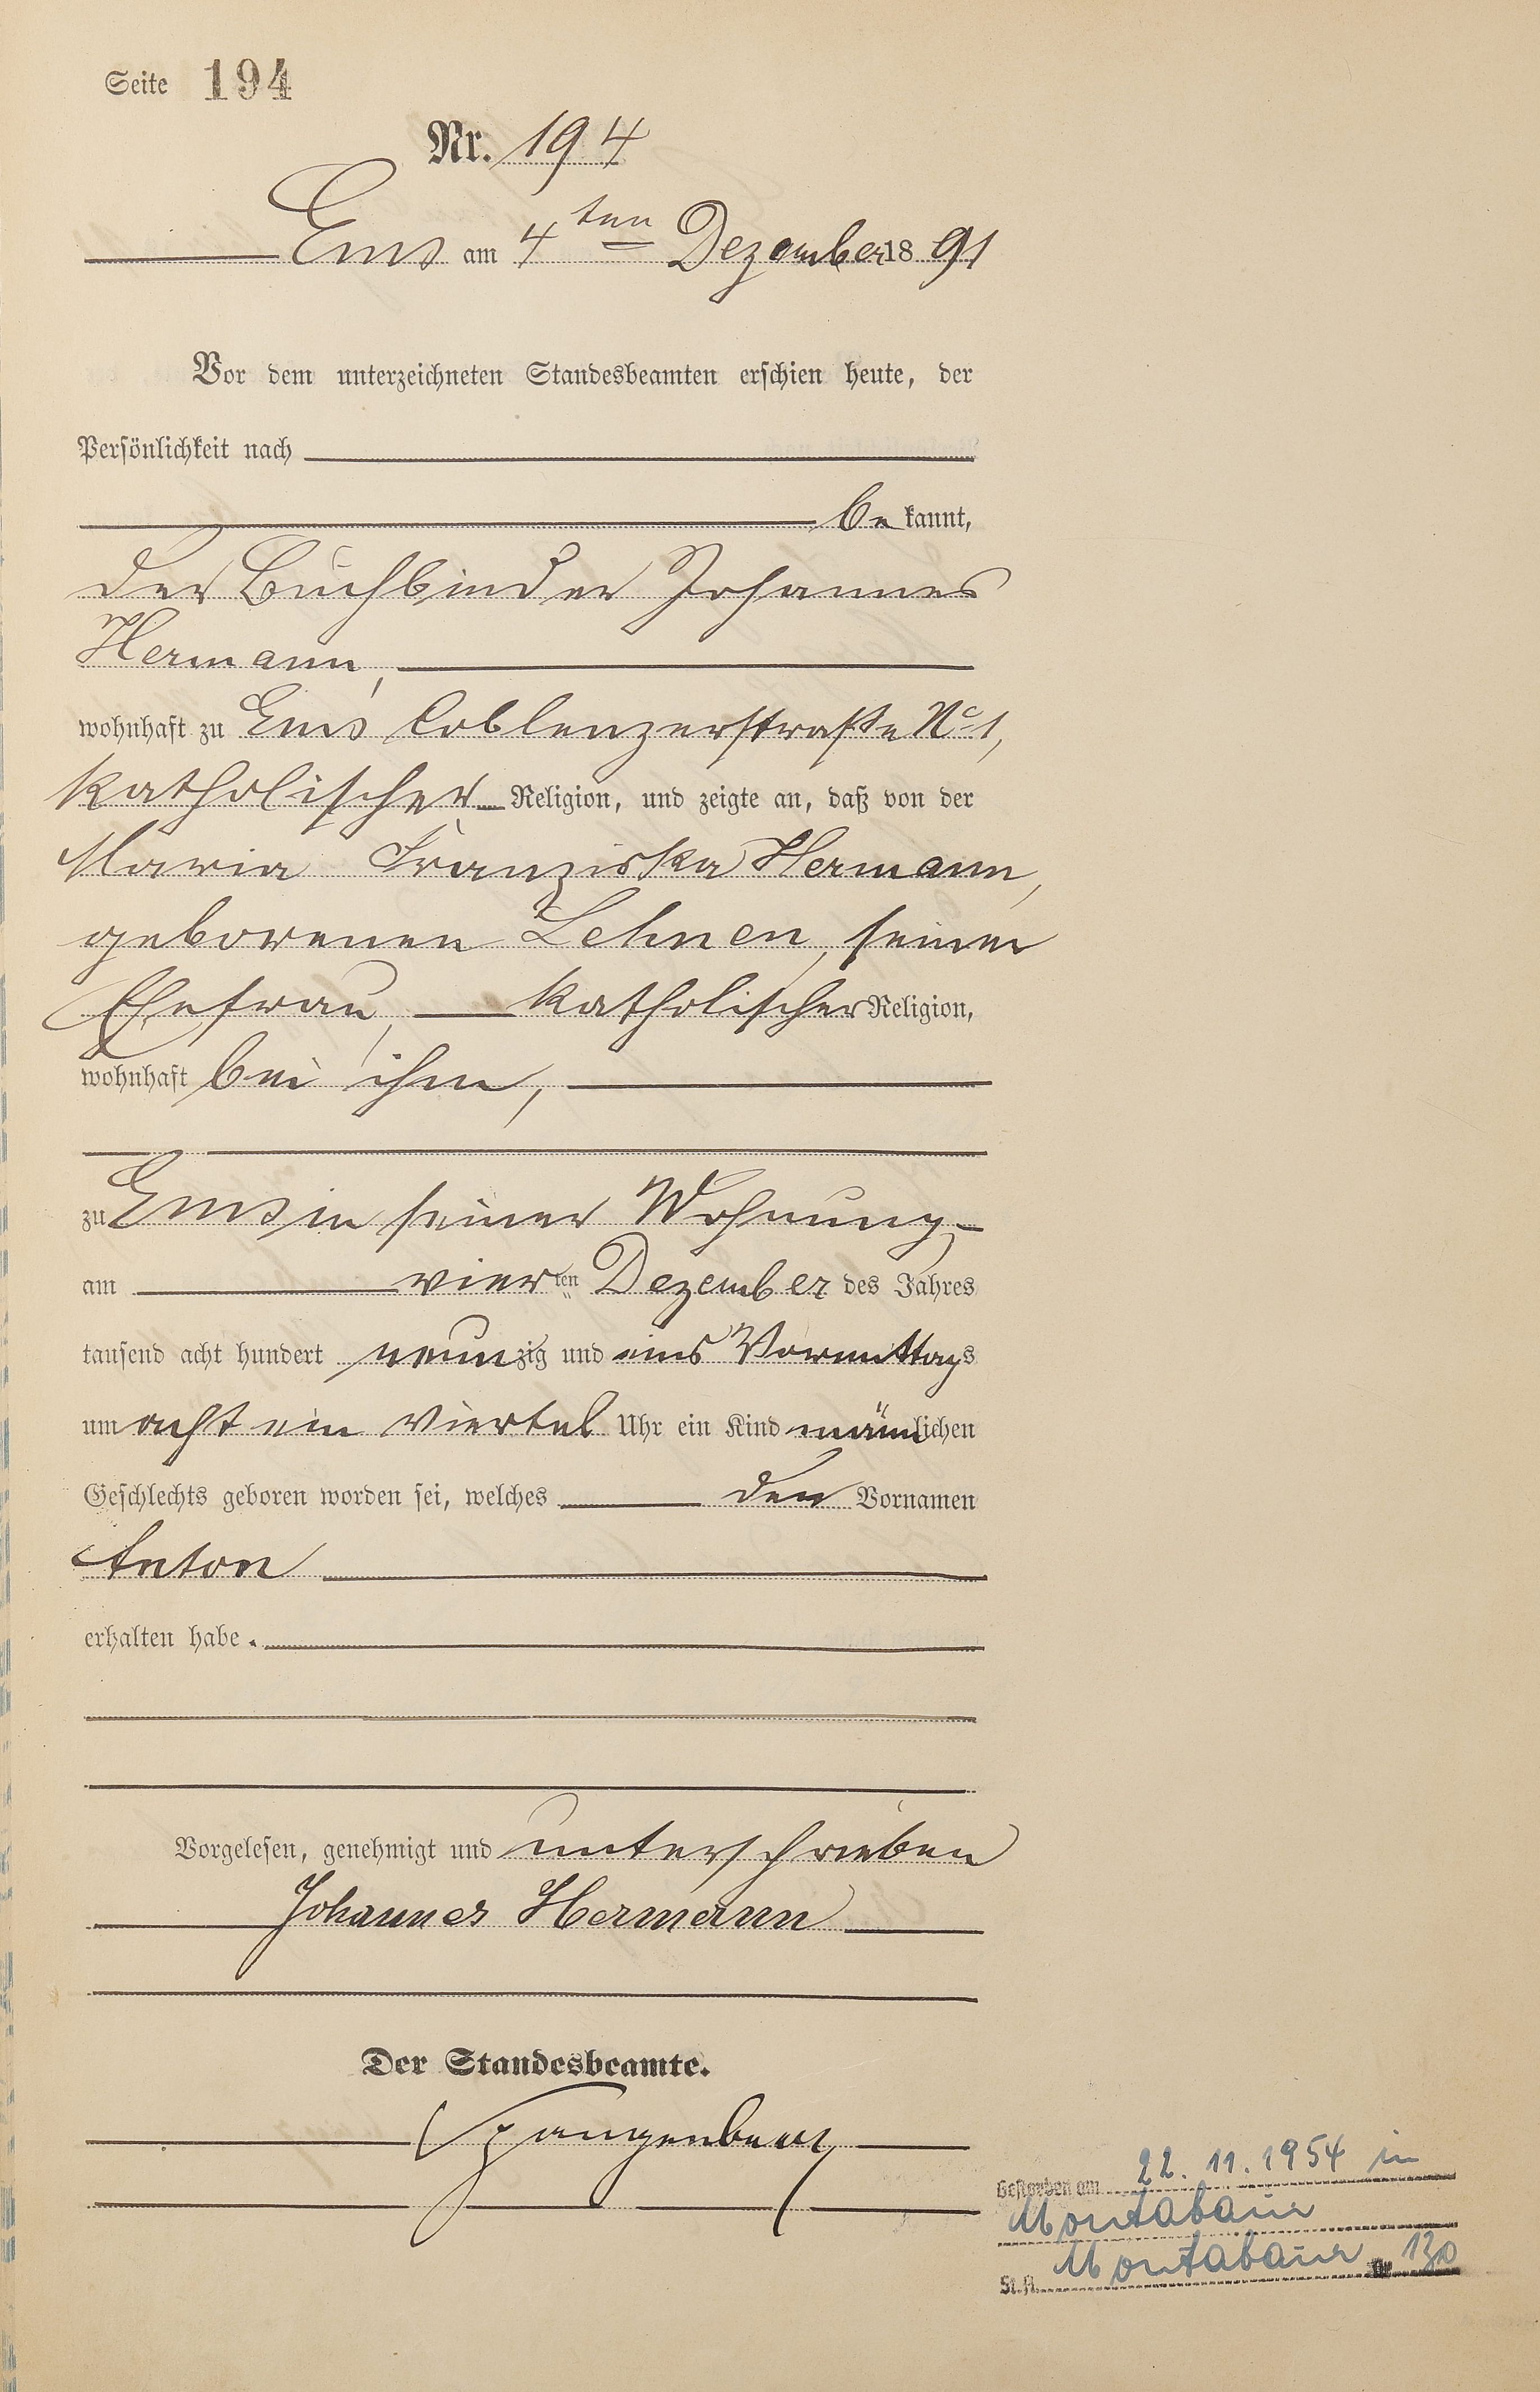 Seite 194
Nr. 194
Ems am 4ten Dezember 1891
Vor dem unterzeichneten Standesbeamten erschien heute, der
Persönlichkeit nach
be kannt,
der Buchbinder Johannes
Hermann,
wohnhaft zu Ems Coblenzerstraße No 1,
katholischer Religion, und zeigte an, daß von der
Maria Franziska Hermann,
geborenen Lehnen, seiner
Ehefrau, katholischer Religion,
wohnhaft bei ihm,
zu Ems in seiner Wohnung
am vierten Dezember des Jahres
tausend acht hundert neunzig und eins Vormittags
um acht ein viertel Uhr ein Kind männlichen
Geschlechts geboren worden sei, welches den Vornamen
Anton
erhalten habe.
Vorgelesen, genehmigt und unterschrieben
Johannes Hermann
Der Standesbeamte.
Spangenberg
Gestorben am 22. 11. 1954 in
Montabaur
St.A. Montabaur Nr 130